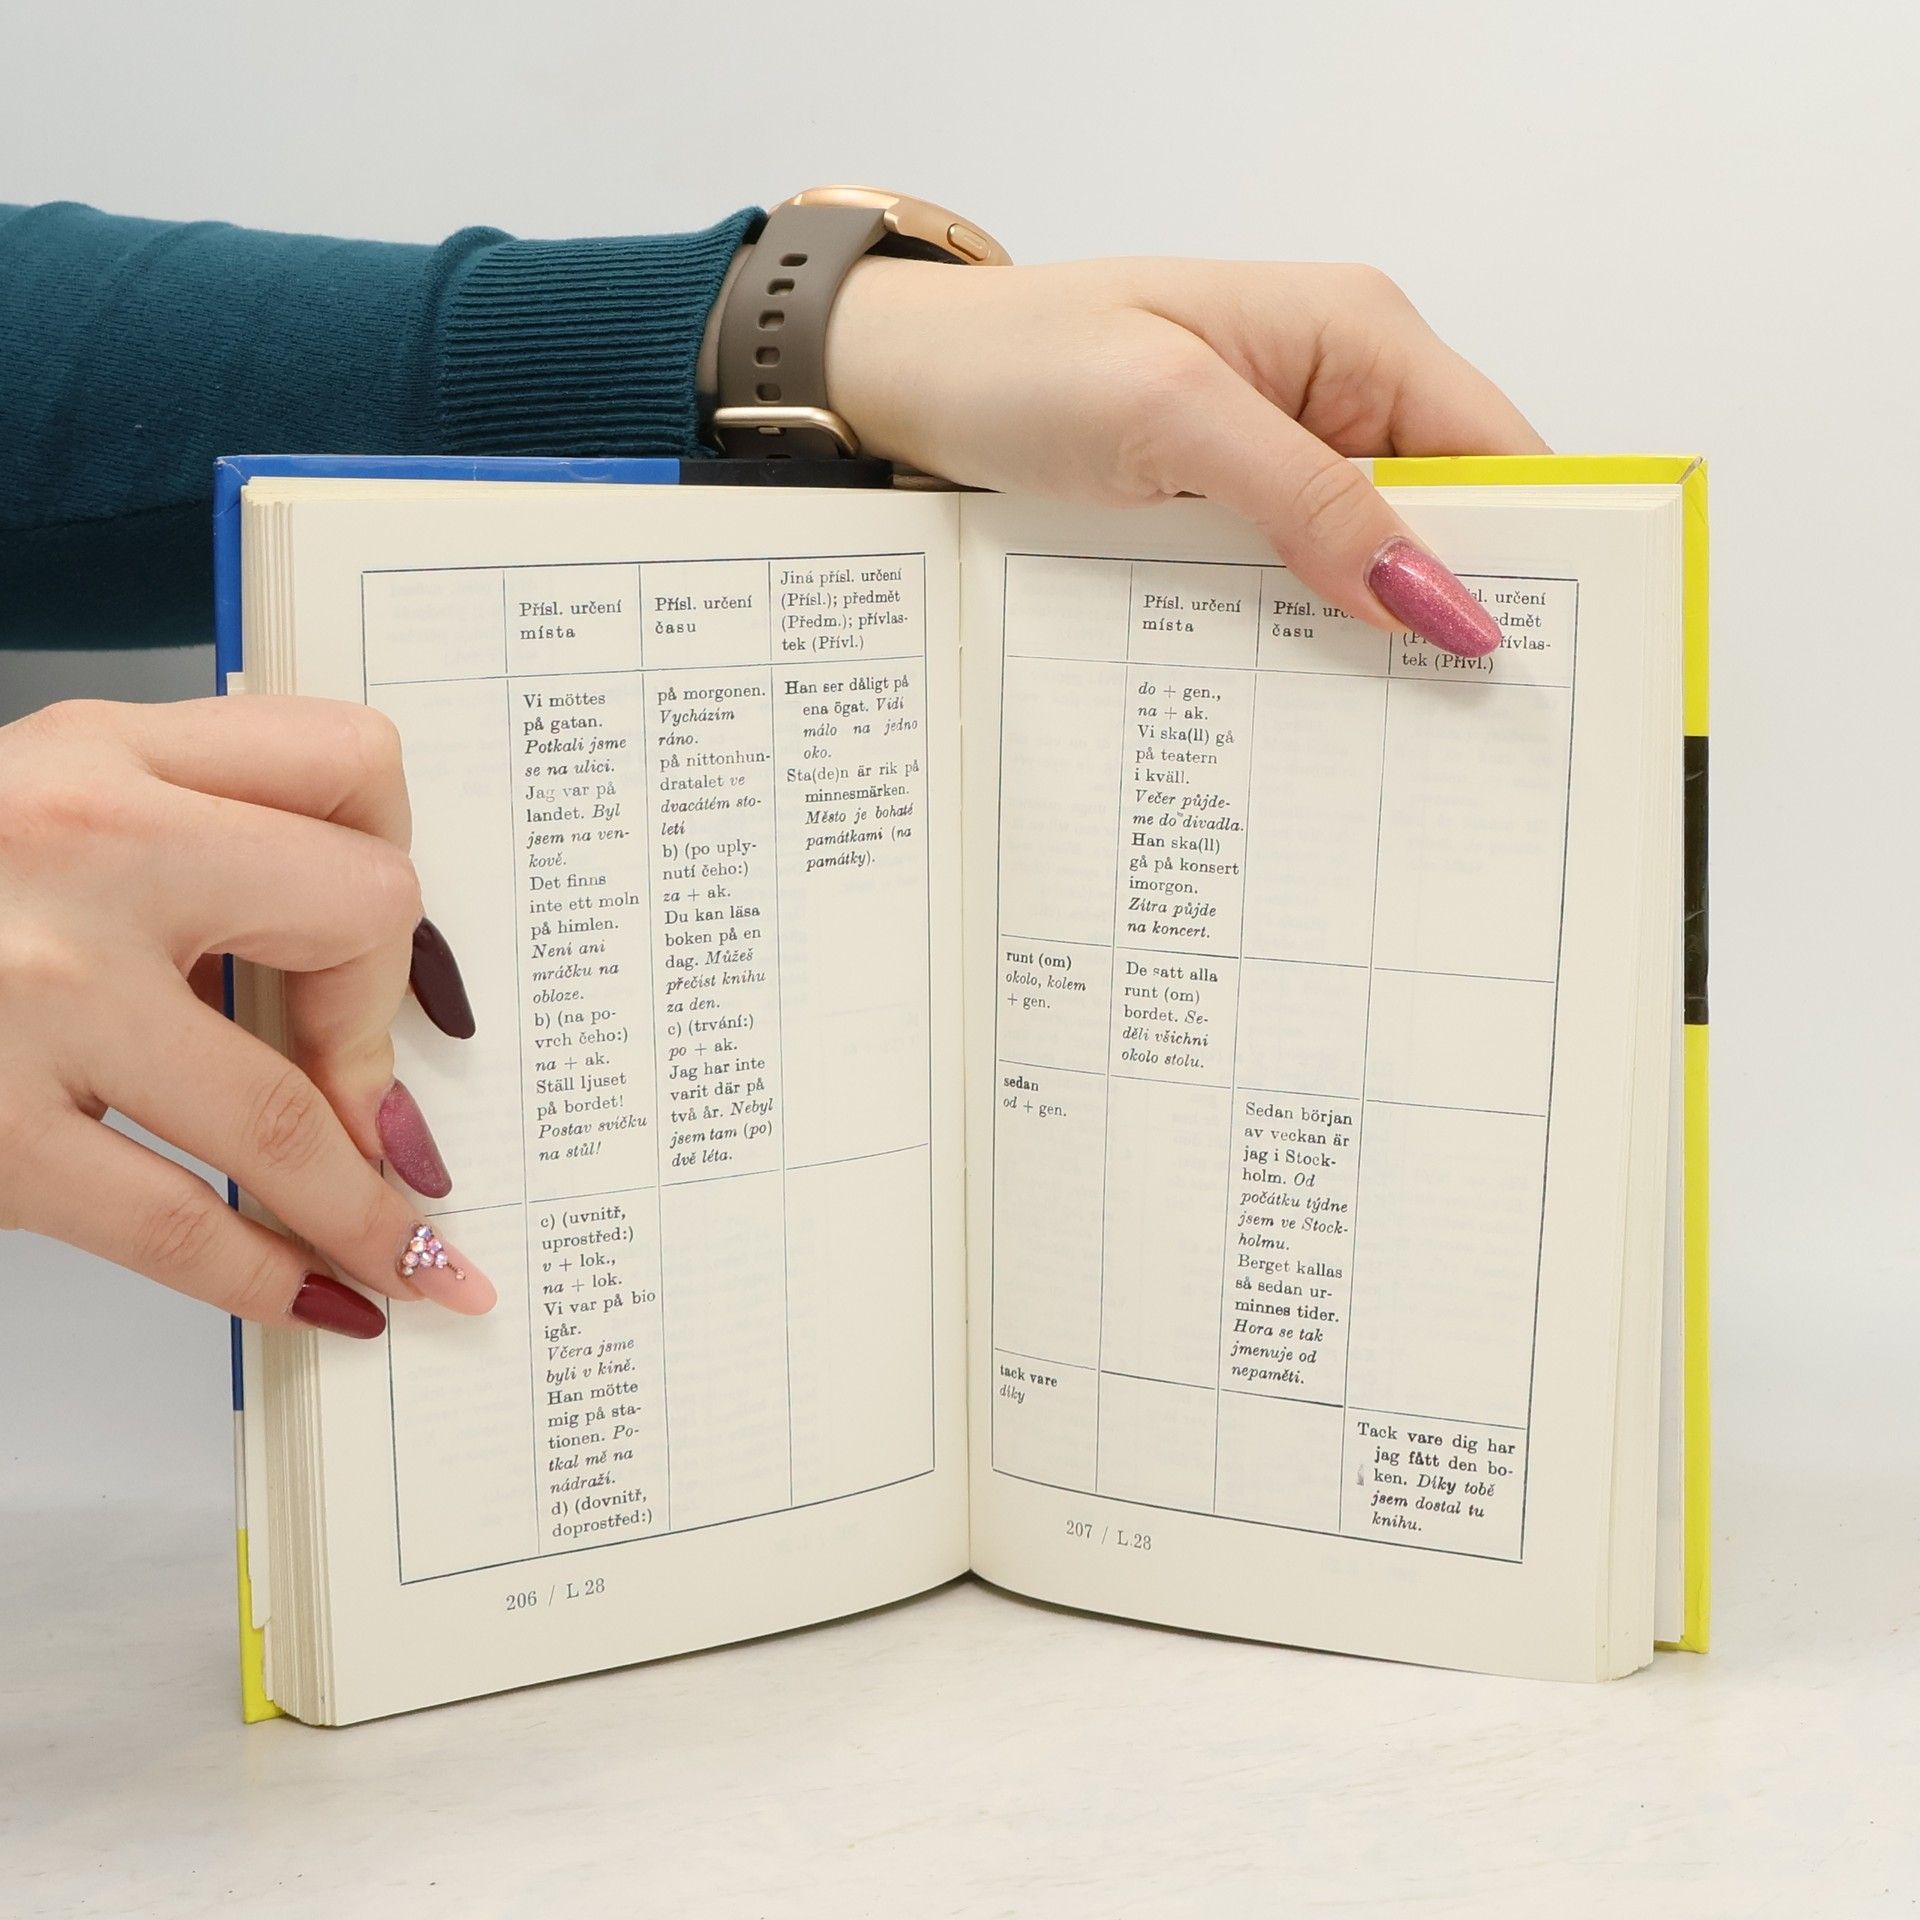 Přísl. určení
místa
Přísl. určení
času
Jiná přísl. určení
(Přísl.); předmět
(Předm.); přívlas-
tek (Přívl.)
Vi möttes
på gatan.
Potkali jsme
se na ulici.
Jag var på
landet. Byl
jsem na ven-
kově.
Det finns
inte ett moln
på himlen.
Není ani
mráčku na
obloze.
b) (na po-
vrch čeho:)
na + ak.
Ställ ljuset
på bordet!
Postav svíčku
na stůl!
på morgonen.
Vycházím
ráno.
på nittonhun-
dratalet ve
dvacátém sto-
letí
b) (po uply-
nutí čeho:)
za + ak.
Du kan läsa
boken på en
dag. Můžeš
přečíst knihu
za den.
c) (trvání:)
po + ak.
Jag har inte
varit där på
två år. Nebyl
jsem tam (po)
dvě léta.
Han ser dåligt på
ena ögat. Vidí
málo na jedno
oko.
Sta(de)n är rik på
minnesmärken.
Město je bohaté
památkami (na
památky).
c) (uvnitř,
uprostřed:)
v + lok.,
na + lok.
Vi var på bio
igår.
Včera jsme
byli v kině.
Han mötte
mig på sta-
tionen. Po-
tkal mě na
nádraží.
d) (dovnitř,
doprostřed:)
206 / L 28
Přísl. určení
místa
Přísl.
času
určení
tek (Přívl.)
do + gen.,
na + ak.
Vi ska(ll) gå
på teatern
i kväll.
Večer půjde-
me do divadla.
Han ska(ll)
gå på konsert
imorgon.
Zítra půjde
na koncert.
runt (om)
okolo, kolem
+ gen.
De satt alla
runt (om)
bordet. Se-
děli všichni
okolo stolu.
sedan
od + gen.
Sedan början
av veckan är
jag i Stock-
holm. Od
počátku týdne
jsem ve Stock-
holmu.
Berget kallas
så sedan ur-
minnes tider.
Hora se tak
jmenuje od
nepaměti.
tack vare
díky
Tack vare dig har
jag fått den bo-
ken. Díky tobě
jsem dostal tu
knihu.
207 / L.28